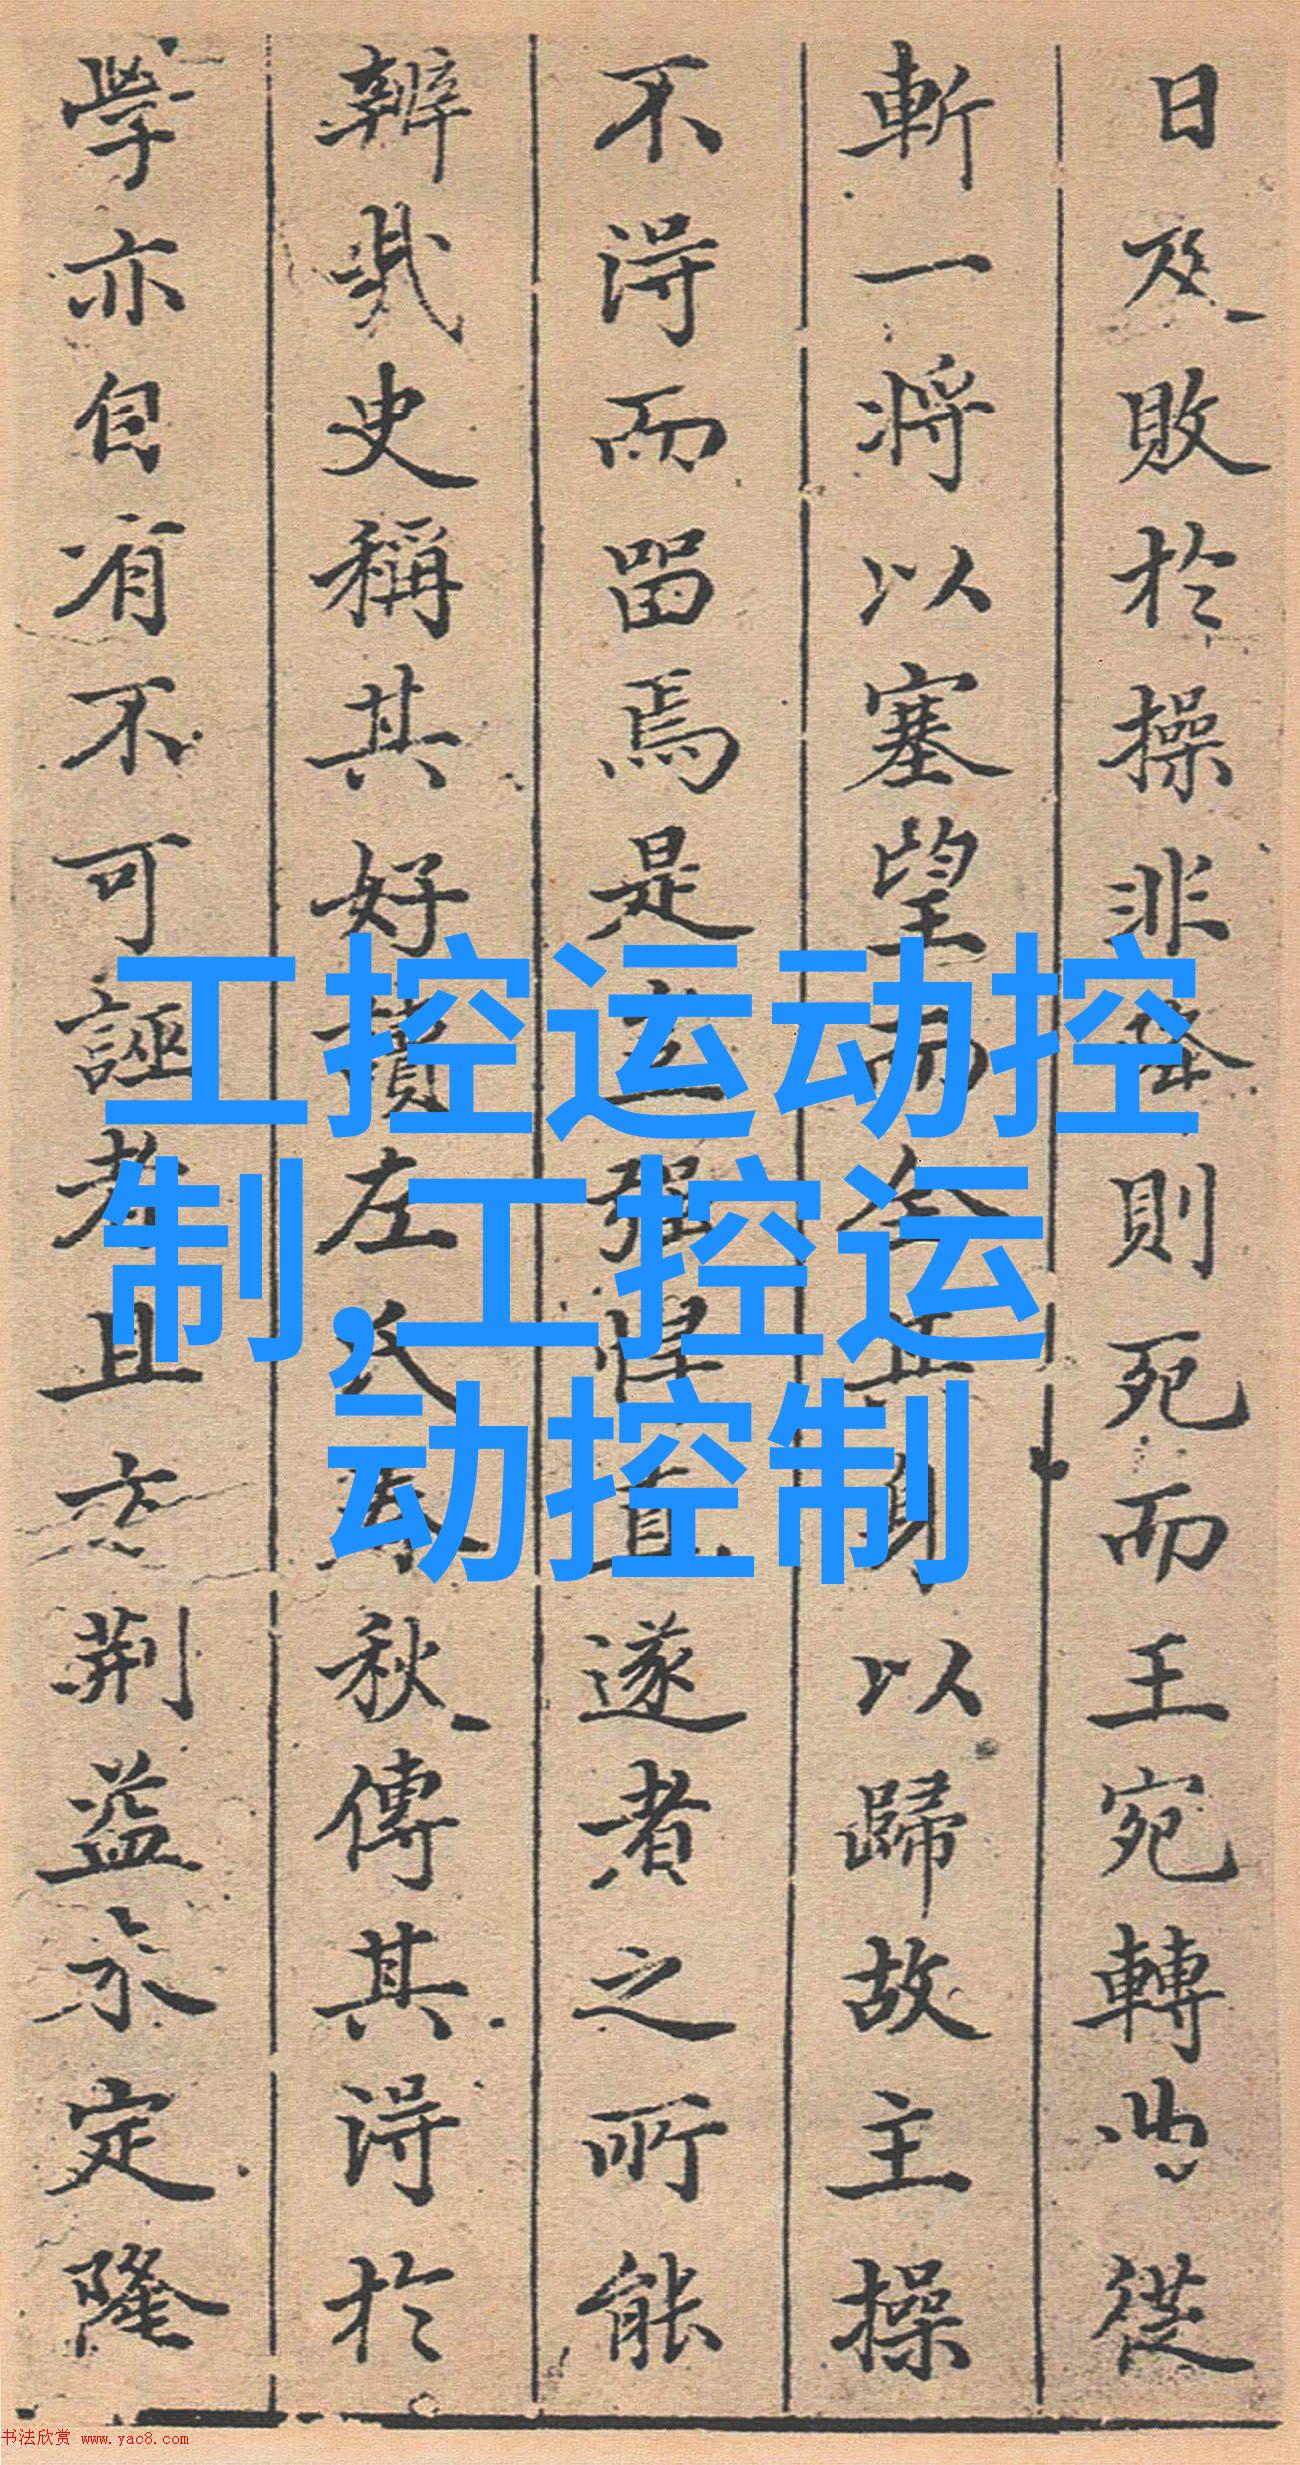 日及敗於操非降則死而王宛轉曲從
斬一將以塞望而全其身以歸故主操
不得而留焉是強悍直遂者之所能
辨哉史稱其好讀左氏春秋傳其得於
學亦自有不可誣者且方荊益未定隆
工控运动控
制,工控运
动控制
书法欣赏 www.yac8.com